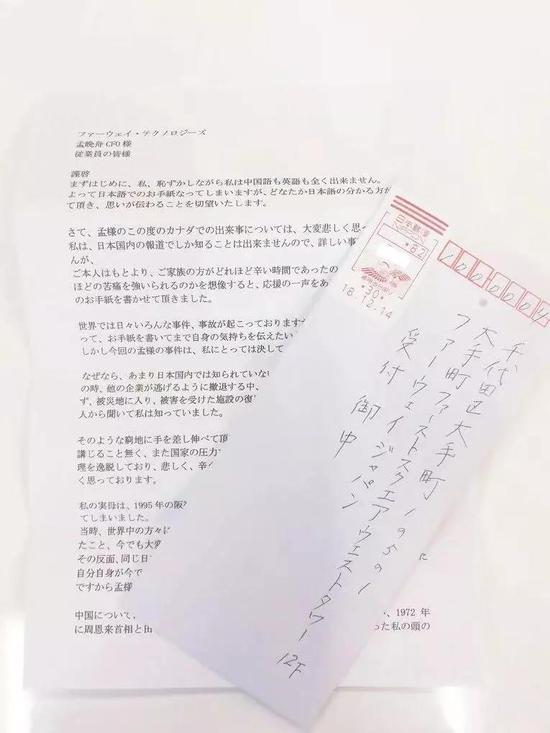 ファーウェイ・テクノロジーズ
孟晩舟 CFO 様
従業員の皆様
謹啓
まずはじめに、私、恥ずかしながら私は中国語も英語も全く出来ません。
よって日本語でのお手紙なってしまいますが、どなたか日本語の分かる方が
て頂き、思いが伝わることを切望いたします。
さて、孟様のこの度のカナダでの出来事については、大変悲しく思っ
私は、日本国内の報道でしか知ることは出来ませんので、詳しい事
んが、
ご本人はもとより、ご家族の方がどれほど辛い時間であったの
ほどの苦痛を強いられるのかを想像すると、応援の一声をあ
のお手紙を書かせて頂きました。
世界では日々いろんな事件、事故が起こっております
って、お手紙を書いてまで自身の気持ちを伝えたい
しかし今回の孟様の事件は、私にとっては決して
なぜなら、あまり日本国内では知られていな
の時、他の企業が逃げるように撤退する中、
ず、被災地に入り、被害を受けた施設の復
人から聞いて私は知っていました。
そのような窮地に手を差し伸べて頂
講じること無く、また国家の圧力
理を逸脱しており、悲しく、辛
く思っております。
私の実母は、1995 年の阪
てしまいました。
当時、世界中の方々に
たこと、今でも大変
その反面、同じ日
自分自身が今で
ですから孟様
中国について、
、1972 年
に周恩来首相と田
った私の頭の
日本郵便
82
30
18.12.14
千代田区大手町
大手町ファーストスクエアウェストタワー 12F
ファーウェイジャパン
受付 御中